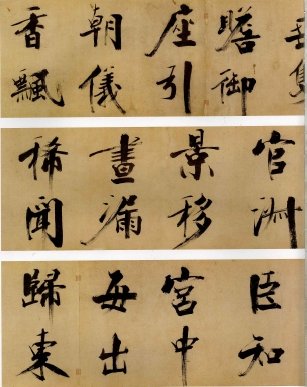 瞻御
座引
朝儀
香飄
官淑
景移
晝漏
稀聞
臣知
宮中
每出
歸東